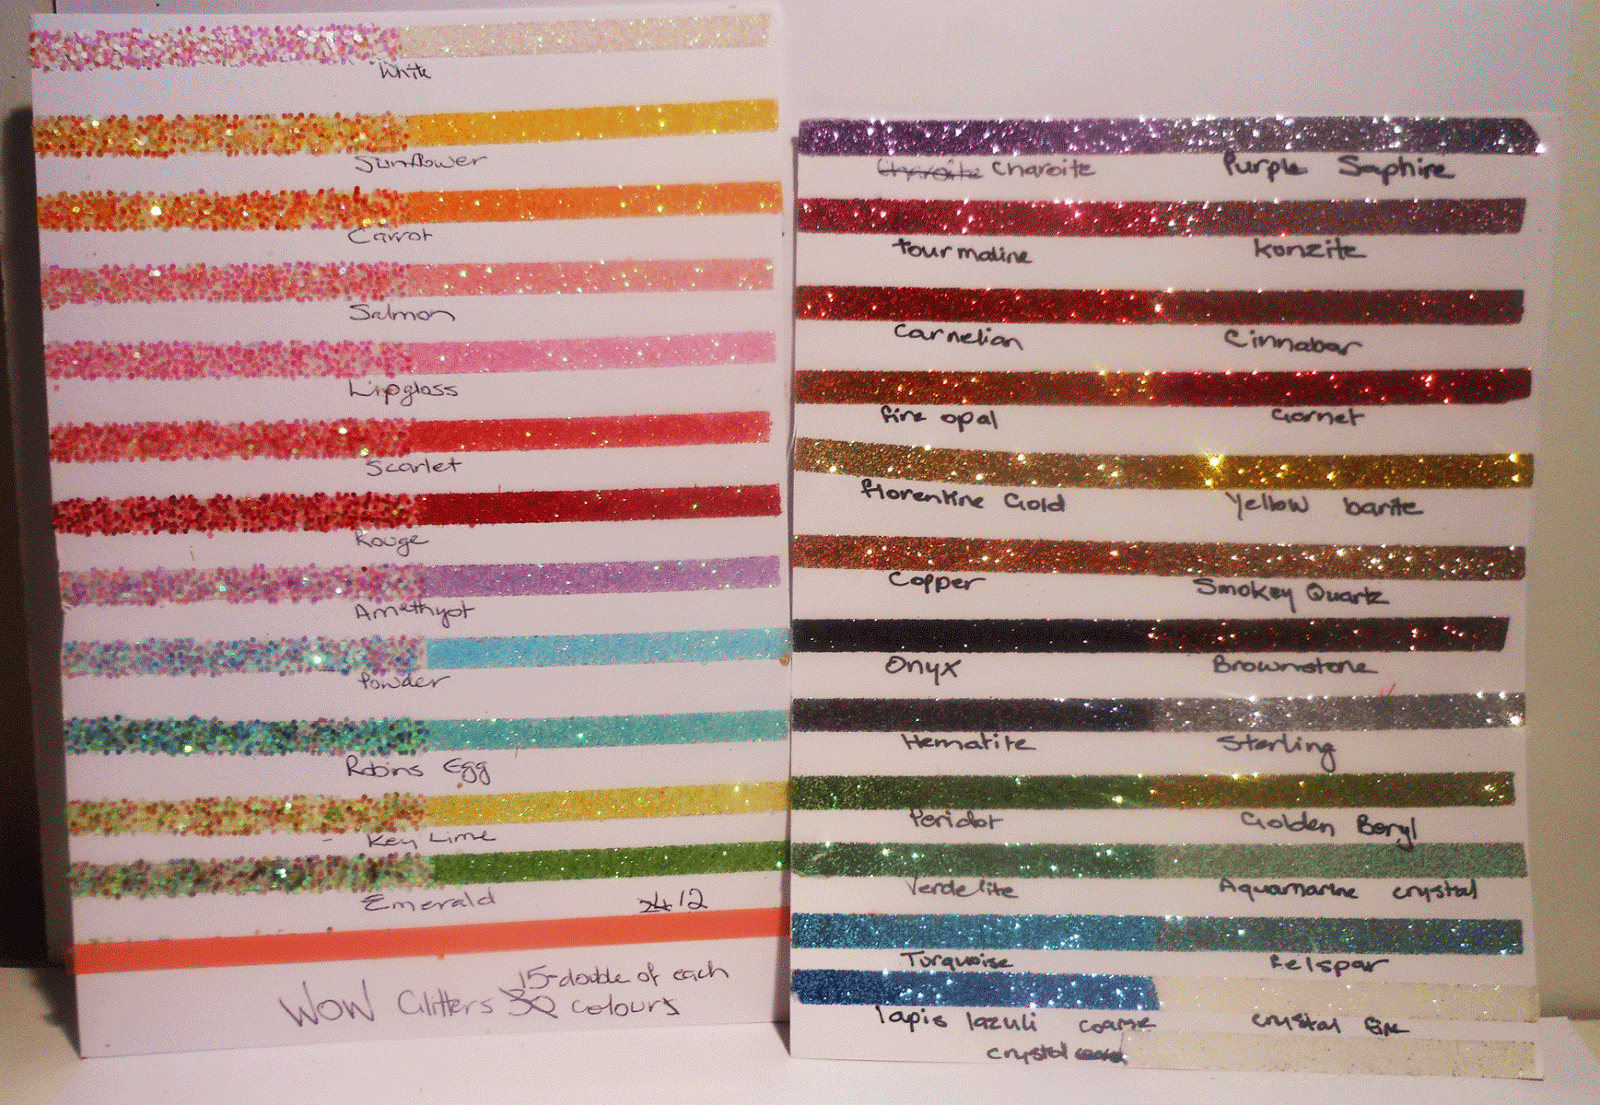 White
Sunflower
Carrot
Salmon
Lipgloss
Scarlet
Rouge
Amethyst
Powder
Robins Egg
Key Lime
Emerald
24 12
15-double of each
WOW Glitters 30 colours
Charoite Purple Saphire
tourmaline Kunzite
Carnelian Cinnabar
fire opal Garnet
florentine Gold Yellow barite
Copper Smokey Quartz
Onyx Brownstone
Hematite Sterling
Peridot Golden Beryl
Verdelite Aquamarine crystal
Turquoise Felspar
lapis lazuli coarse crystal fine
crystal